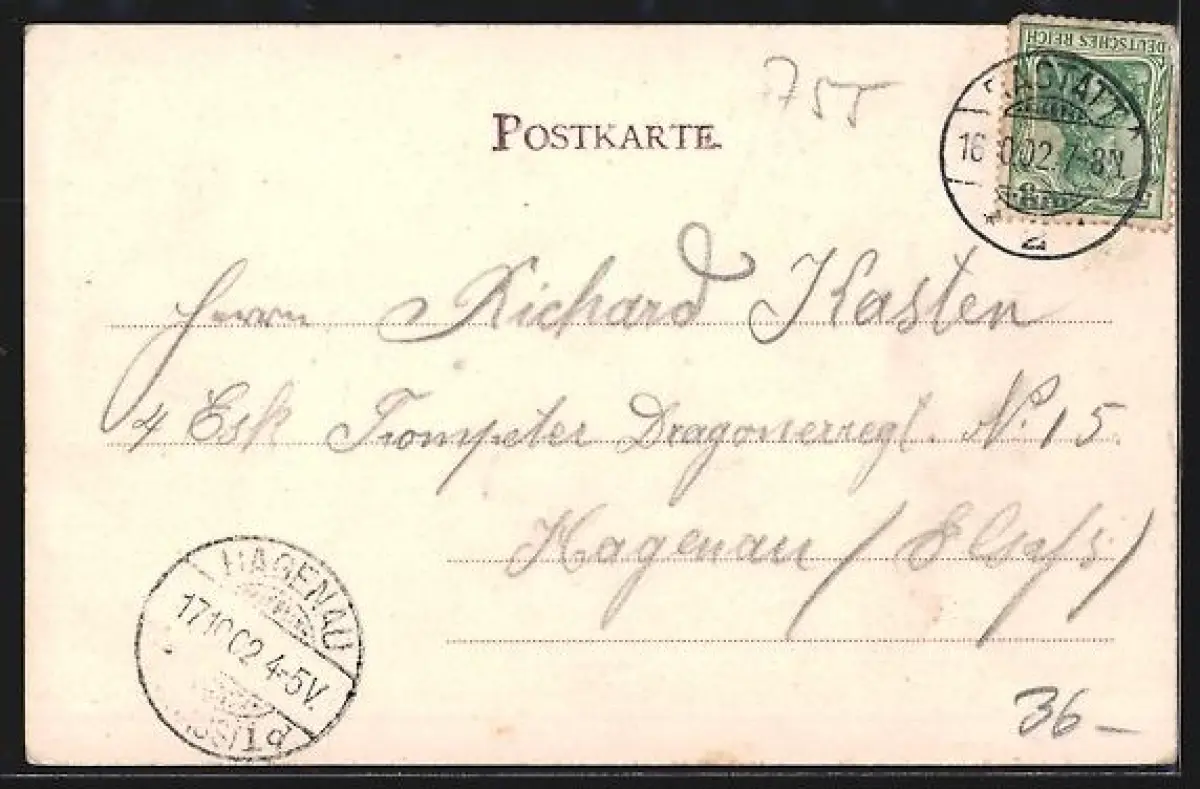 DEUTSCHES REICH
755
POSTKARTE
RASTATT
16 10.02. 7-8N.
2
Herrn Richard Kasten
4 Esk Trompeter Dragonerregt. No. 15.
Hagenau / Elsass)
HAGENAU
17.10.02. 4-5V.
36 –